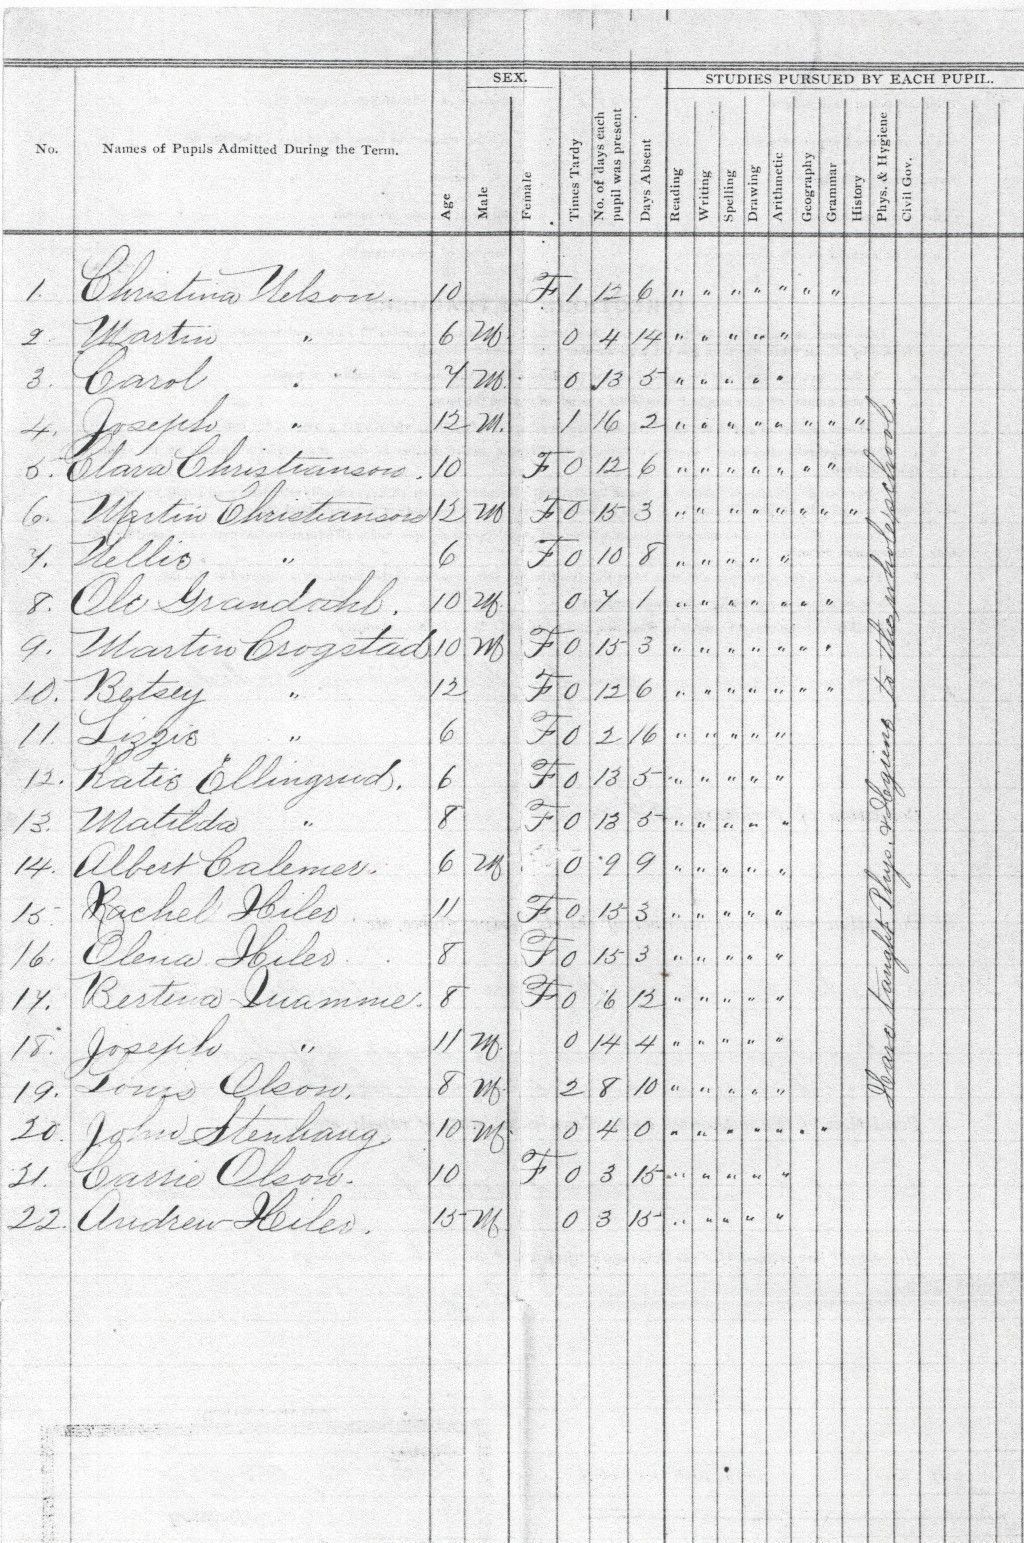 SEX. STUDIES PURSUED BY EACH PUPIL.
No. Names of Pupils Admitted During the Term. Age Male Female Times Tardy No. of days each pupil was present Days Absent Reading Writing Spelling Drawing Arithmetic Geography Grammar History Phys. & Hygiene Civil Gov.
1. Christina Nelson. 10 F 1 12 6 " " " " " " "
2. Martin " 6 M. 0 4 14 " " " " "
3. Carol " 7 M. 0 13 5 " " " " "
4. Joseph " 12 M. 1 16 2 " " " " " " " "
5. Clara Christianson. 10 F 0 12 6 " " " " " " "
6. Martin Christianson 12 M F 0 15 3 " " " " " " " "
7. Nellie " 6 F 0 10 8 " " " " "
8. Ole Grandahl. 10 M. 0 7 1 " " " " " " "
9. Martin Crogstad 10 M F 0 15 3 " " " " " " "
10. Betsey " 12 F 0 12 6 " " " " " " "
11. Lizzie " 6 F 0 2 16 " " " " "
12. Katie Ellingrud. 6 F 0 13 5 " " " " "
13. Matilda " 8 F 0 13 5 " " " " "
14. Albert Calemer. 6 M 0 9 9 " " " " "
15. Rachel Hiler 11 F 0 15 3 " " " " "
16. Elena Hiler. 8 F 0 15 3 " " " " "
17. Bertina Quamme. 8 F 0 6 12 " " " " "
18. Joseph " 11 M. 0 14 4 " " " " "
19. Louis Olson. 8 M. 2 8 10 " " " " "
20. John Stenhaug 10 M. 0 4 0 " " " " " " "
21. Carrie Olson. 10 F 0 3 15 " " " " "
22. Andrew Hiler. 15 M. 0 3 15 " " " " "
Have taught Phys. & Hegiene to the whole school.